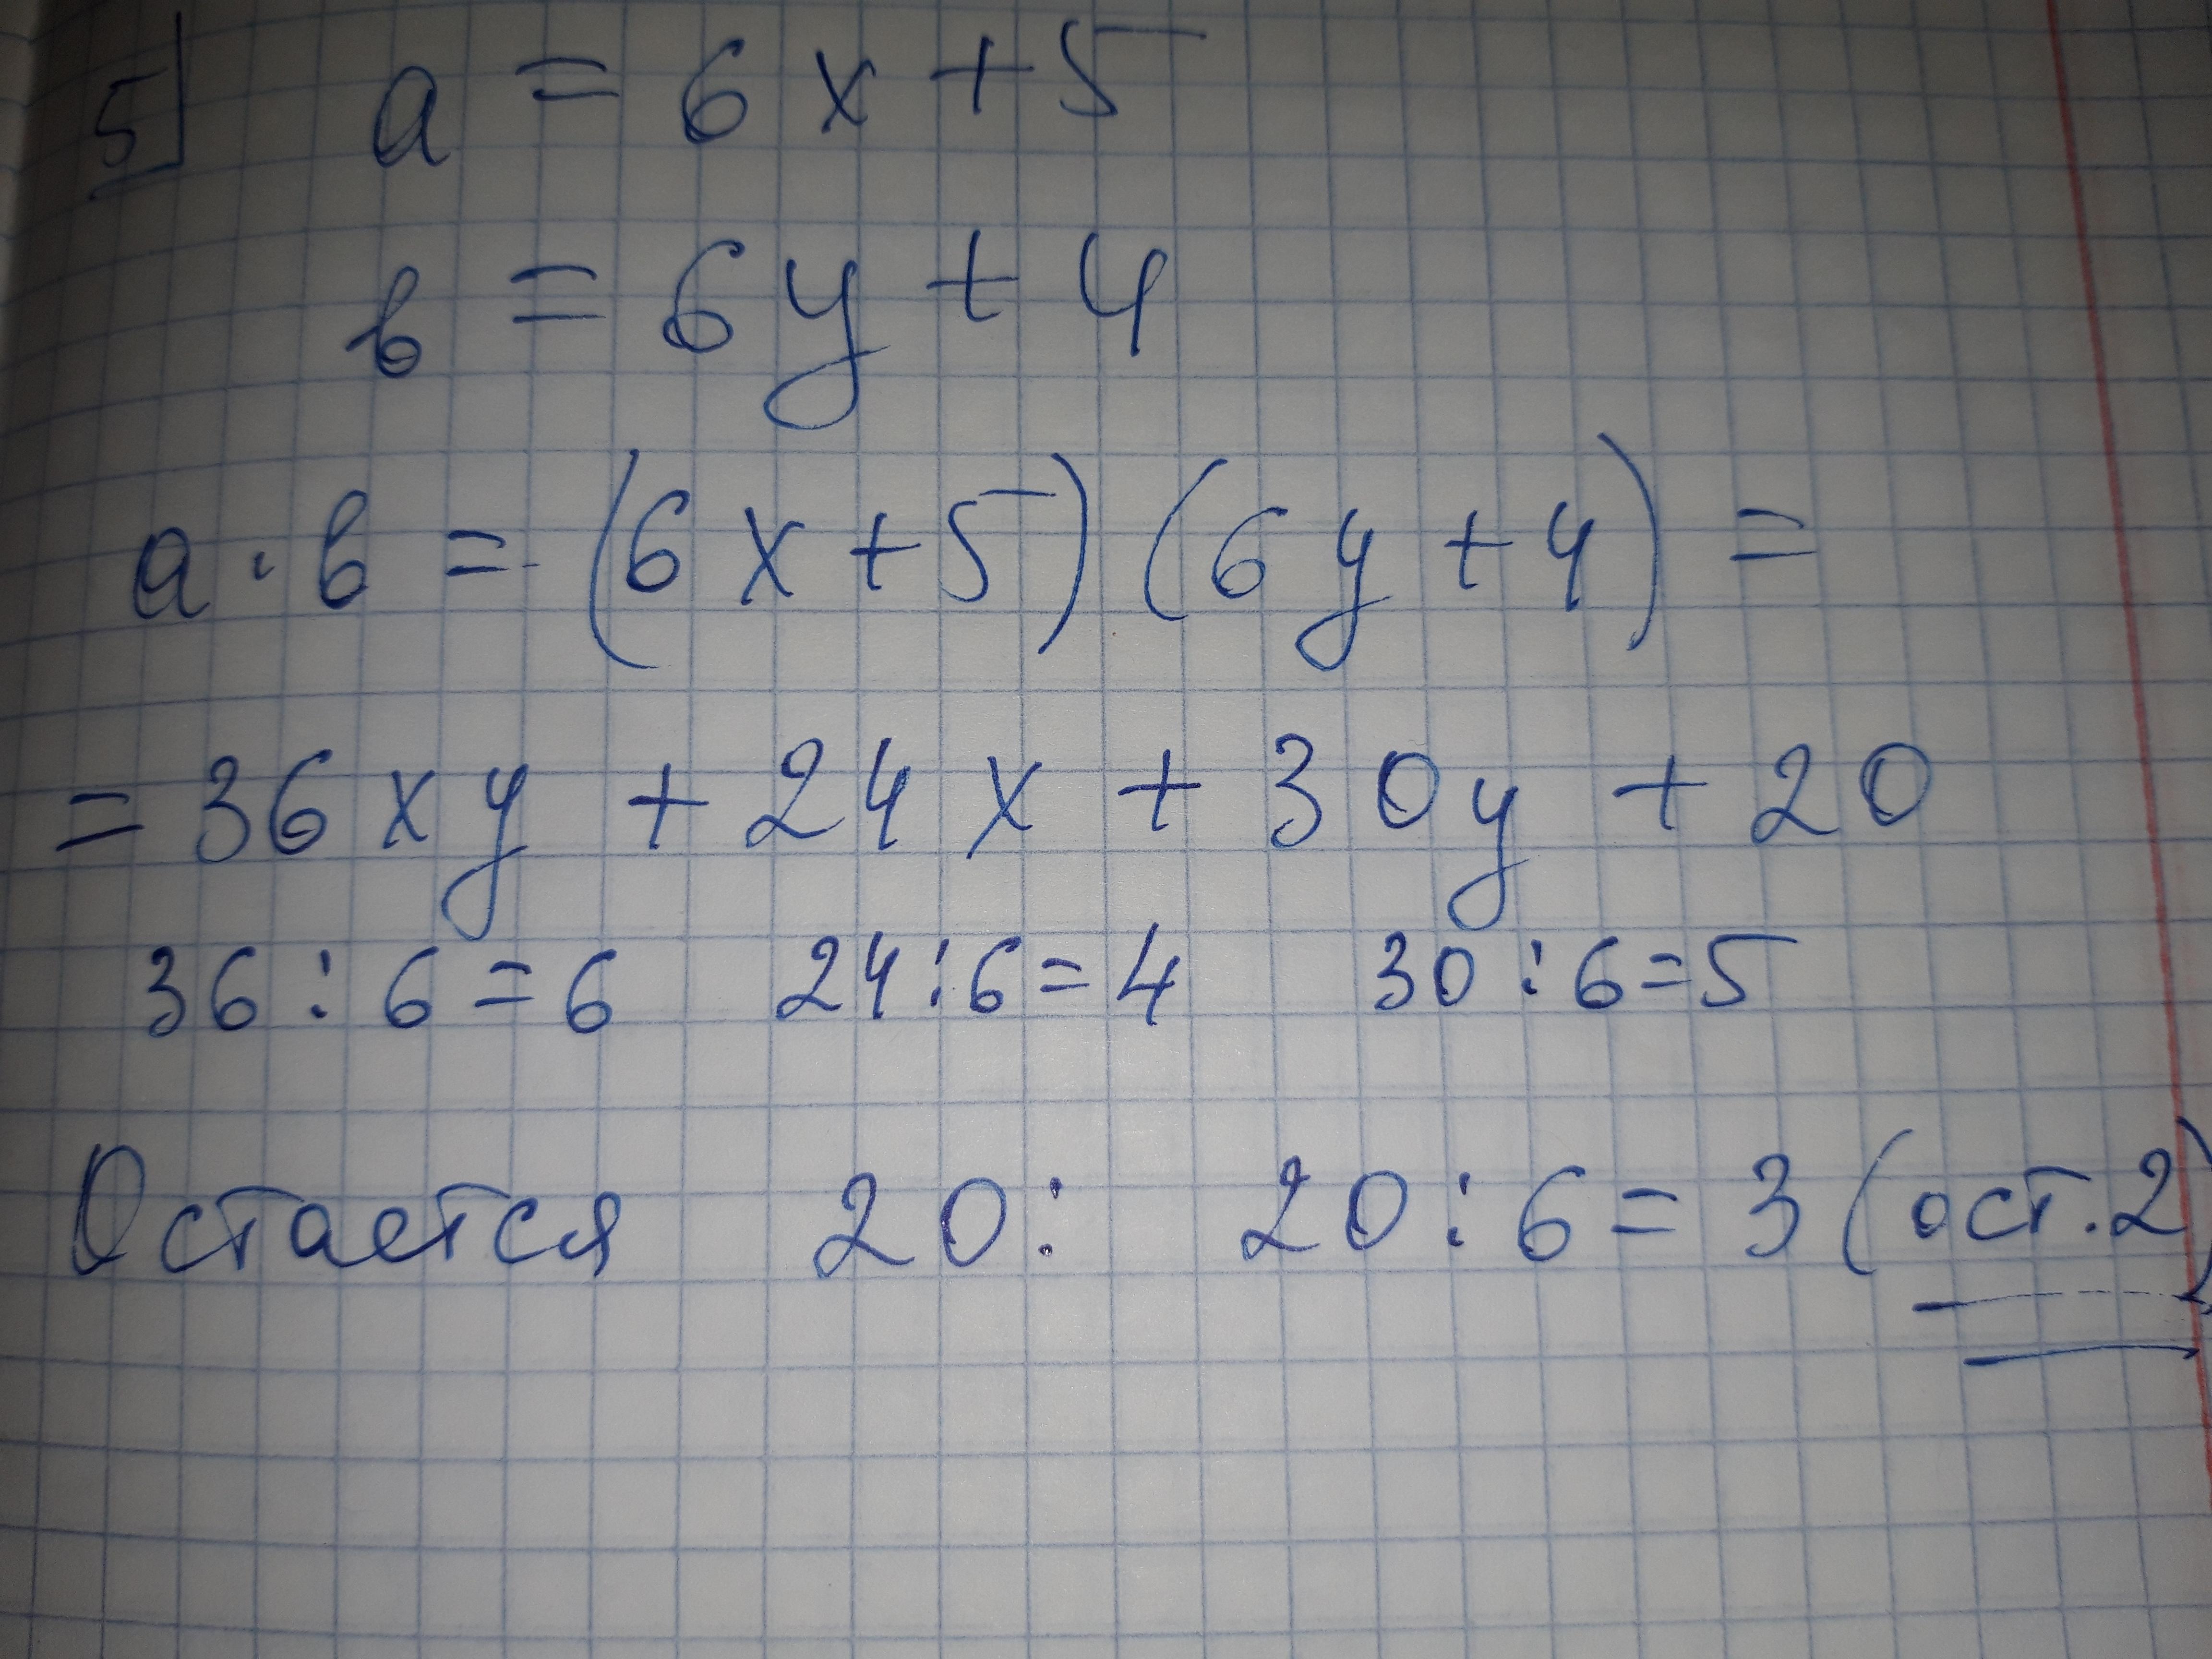 5 a = 6x + 5
в = 6y + 4
a · в = (6x + 5) (6y + 4) =
= 36xy + 24x + 30y + 20
36 : 6 = 6 24 : 6 = 4 30 : 6 = 5
Остается 20: 20 : 6 = 3 (ост. 2)